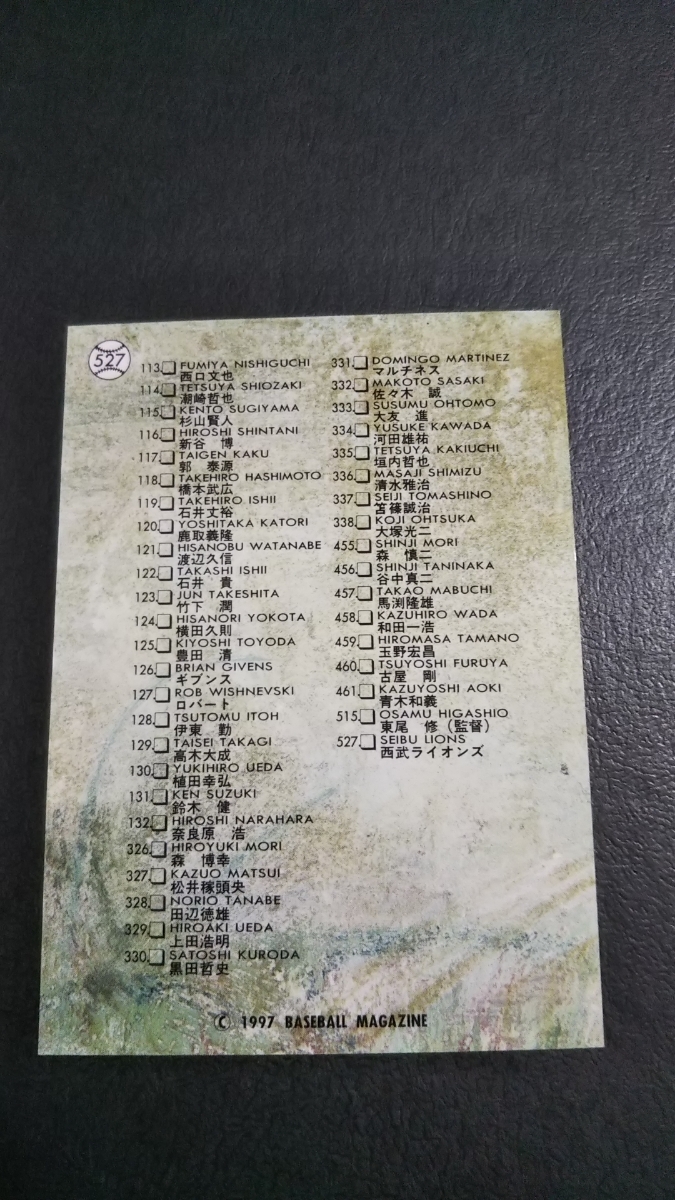 527
113. FUMIYA NISHIGUCHI
西口文也
114. TETSUYA SHIOZAKI
潮崎哲也
115. KENTO SUGIYAMA
杉山賢人
116. HIROSHI SHINTANI
新谷 博
117. TAIGEN KAKU
郭 泰源
118. TAKEHIRO HASHIMOTO
橋本武広
119. TAKEHIRO ISHII
石井丈裕
120. YOSHITAKA KATORI
鹿取義隆
121. HISANOBU WATANABE
渡辺久信
122. TAKASHI ISHII
石井 貴
123. JUN TAKESHITA
竹下 潤
124. HISANORI YOKOTA
横田久則
125. KIYOSHI TOYODA
豊田 清
126. BRIAN GIVENS
ギブンス
127. ROB WISHNEVSKI
ロバート
128. TSUTOMU ITOH
伊東 勤
129. TAISEI TAKAGI
高木大成
130. YUKIHIRO UEDA
植田幸弘
131. KEN SUZUKI
鈴木 健
132. HIROSHI NARAHARA
奈良原 浩
326. HIROYUKI MORI
森 博幸
327. KAZUO MATSUI
松井稼頭央
328. NORIO TANABE
田辺徳雄
329. HIROAKI UEDA
上田浩明
330. SATOSHI KURODA
黒田哲史
331. DOMINGO MARTINEZ
マルチネス
332. MAKOTO SASAKI
佐々木 誠
333. SUSUMU OHTOMO
大友 進
334. YUSUKE KAWADA
河田雄祐
335. TETSUYA KAKIUCHI
垣内哲也
336. MASAJI SHIMIZU
清水雅治
337. SEIJI TOMASHINO
笘篠誠治
338. KOJI OHTSUKA
大塚光二
455. SHINJI MORI
森 慎二
456. SHINJI TANINAKA
谷中真二
457. TAKAO MABUCHI
馬渕隆雄
458. KAZUHIRO WADA
和田一浩
459. HIROMASA TAMANO
玉野宏昌
460. TSUYOSHI FURUYA
古屋 剛
461. KAZUYOSHI AOKI
青木和義
515. OSAMU HIGASHIO
東尾 修(監督)
527. SEIBU LIONS
西武ライオンズ
© 1997 BASEBALL MAGAZINE